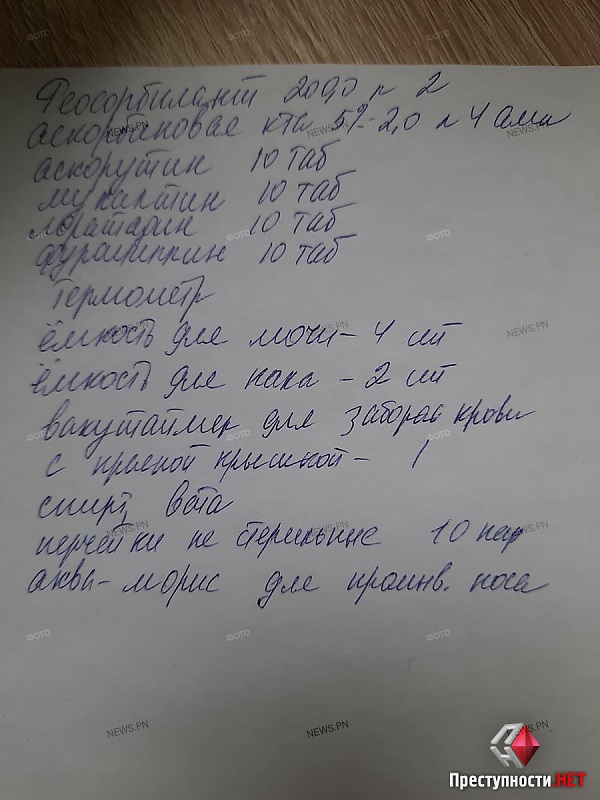 Геосорбилант 200,0 N 2
аскорбиновая к-та 5% - 2,0 N 4 амп
аскорутин 10 таб
мукалтин 10 таб
лоратадин 10 таб
фурациллин 10 таб
термометр
ёмкость для мочи - 4 шт
ёмкость для кала - 2 шт
вакутаймер для забора крови
с красной крышкой - 1
спирт, вата
перчатки не стерильные 10 пар
аква-морис для промыв. носа
NEWS.PN
ФОТО
Преступности.НЕТ